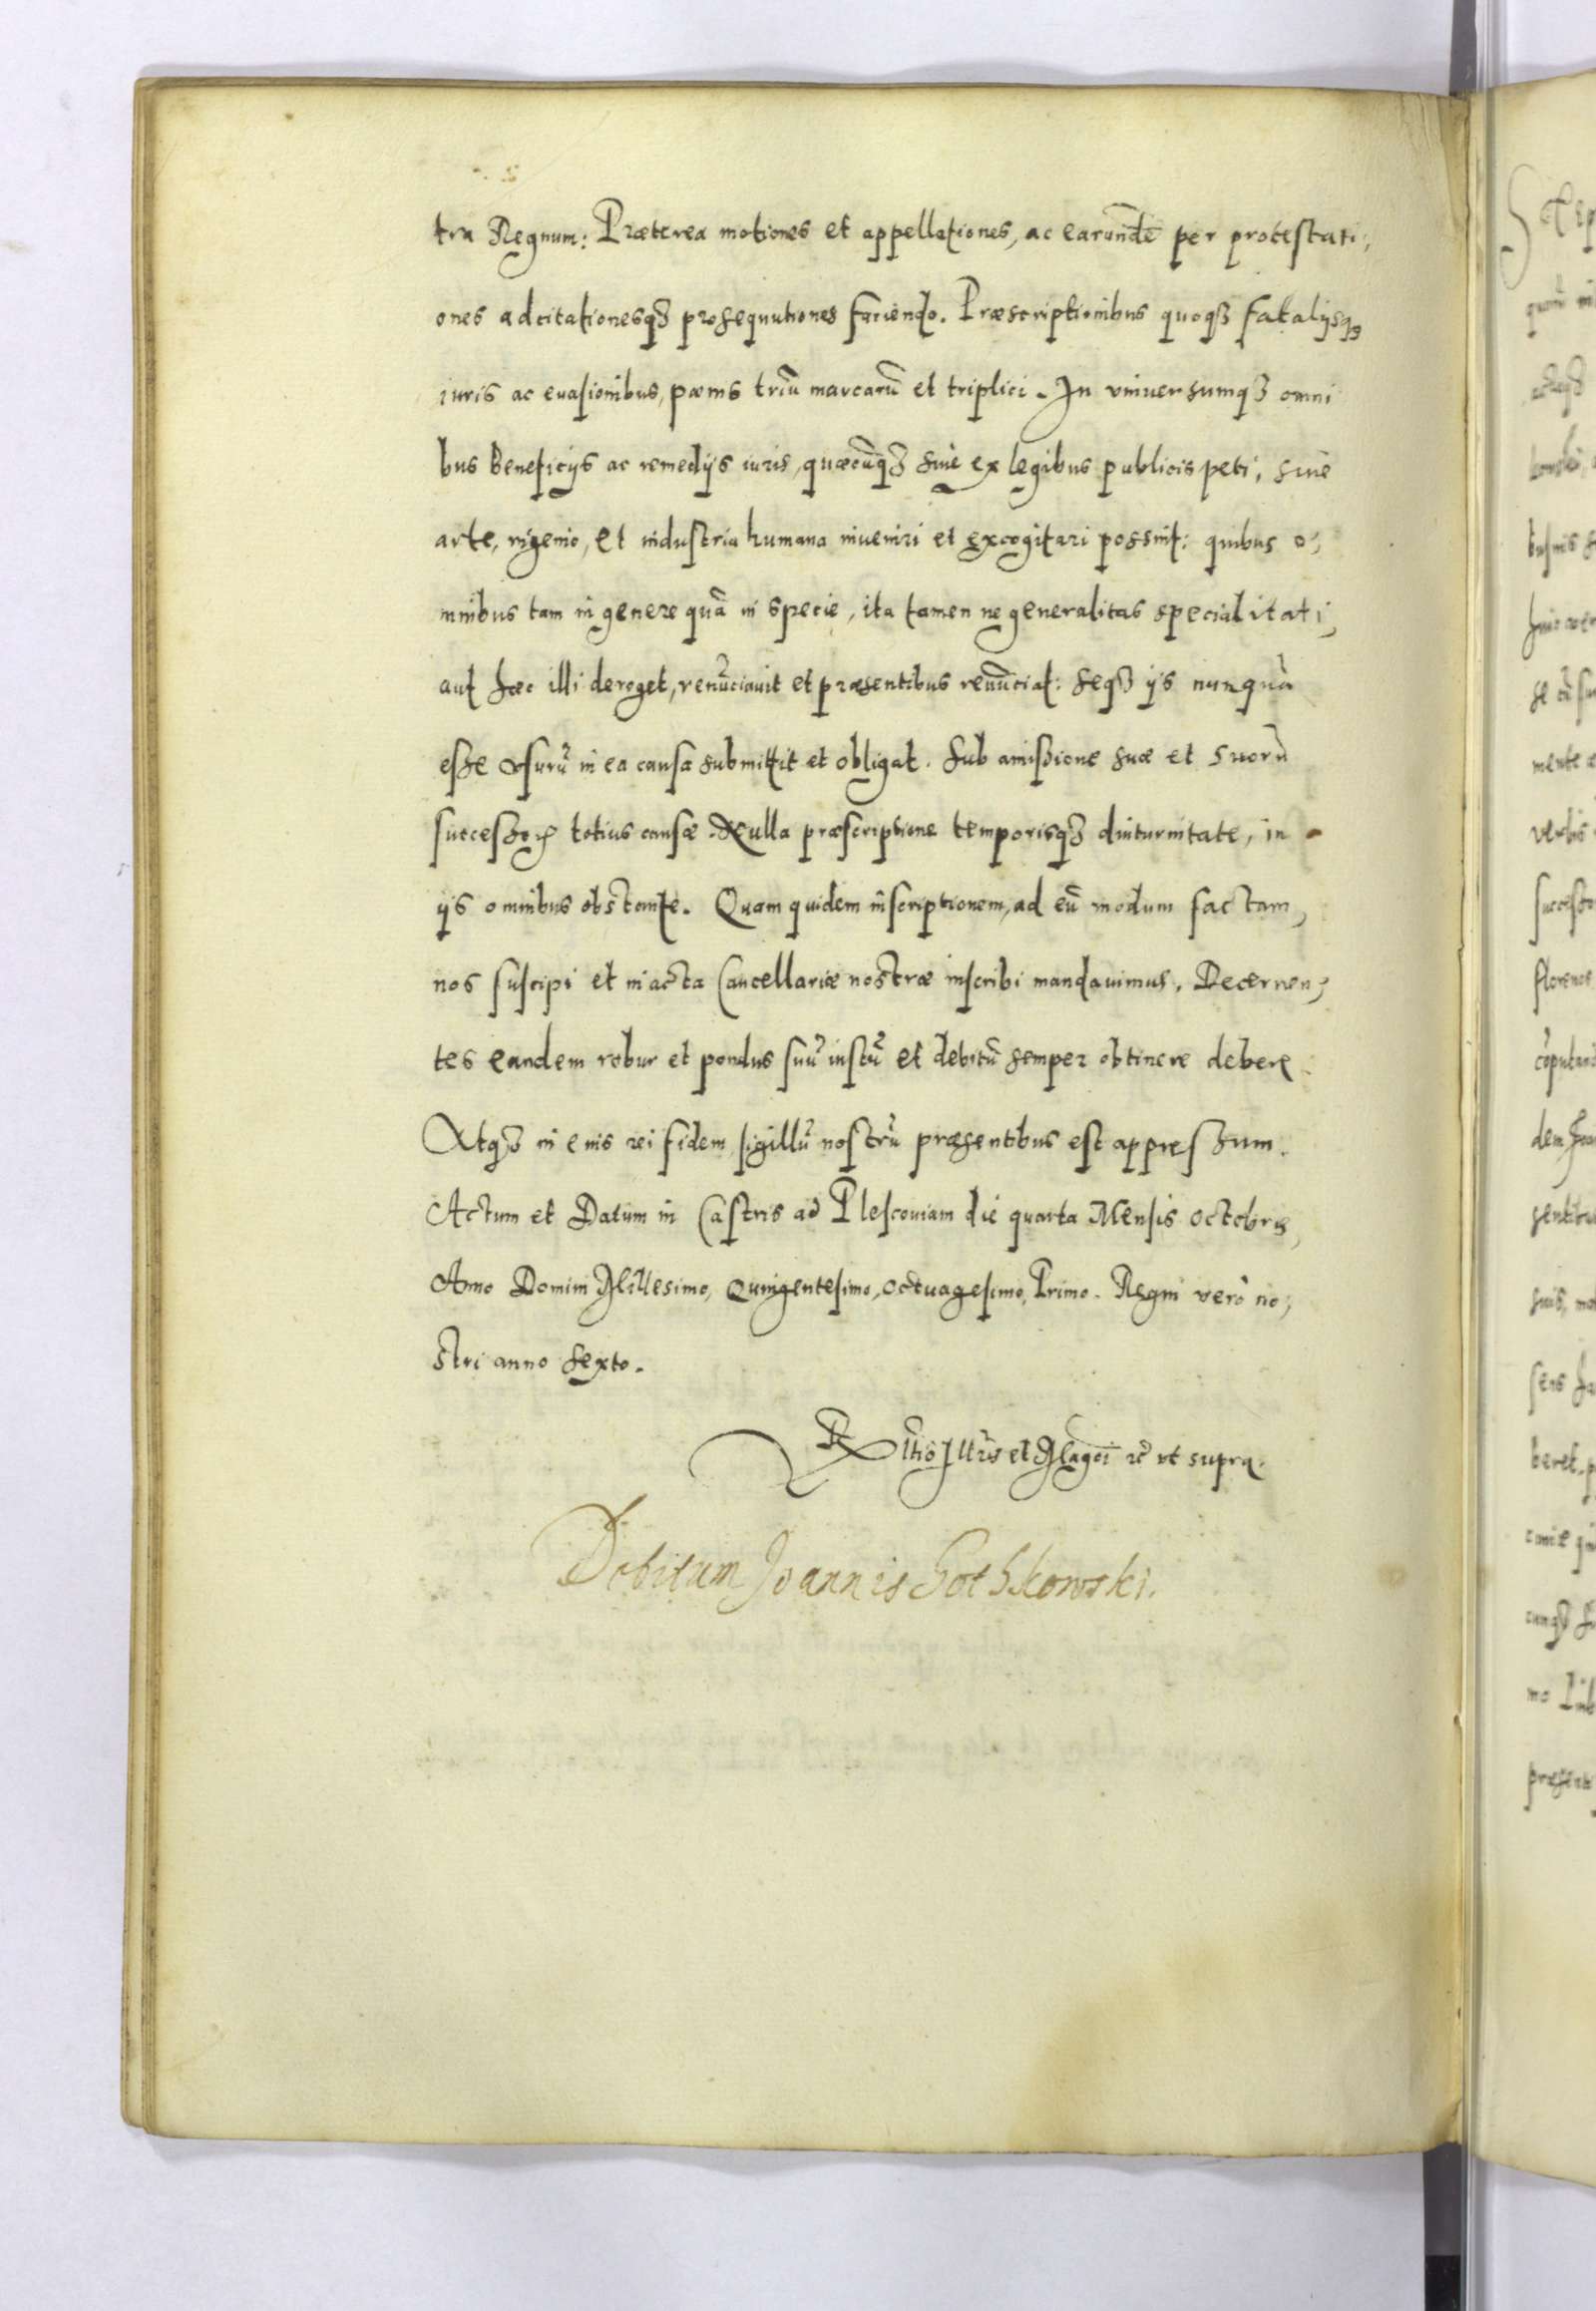 tra Regnum: Præterea motiones et appellationes, ac earundē per protestati,
ones adcitationesqȝ prosequutiones faciendo. Præscriptionibus quoqȝ fatalijsqȝ
iuris ac euasionibus, pœnis triū marcarū et triplici. In vniuersumqȝ omni
bus beneficijs ac remedijs iuris, quæcūqȝ siue ex legibus publicis peti, siue
arte, ingenio, et industria humana inueniri et excogitari possint: quibus o,
mnibus tam in genere quā in specie, ita tamen ne generalitas specialitati,
aut hæc illi deroget, renūciauit et præsentibus renūciat: seqȝ ijs nunquā
esse vsurū in ea causa submittit et obligat. Sub amissione suæ et suorū
successorꝝ totius causæ. Nulla præscriptione temporisqȝ diuturnitate, in
ijs omnibus obstante. Quam quidem inscriptionem, ad eū modum factam,
nos suscipi et in acta Cancellariæ nostræ inscribi mandauimus. Decernen,
tes eandem robur et pondus suū iustū et debitū semper obtinere debere
Atqȝ in eius rei fidem sigillū nostrū præsentibus est appressum.
Actum et Datum in Castris ad Plescouiam die quarta Mensis Octobris,
Anno Domini Millesimo, Quingentesimo, Octuagesimo, Primo. Regni verò no,
stri anno sexto.
Rltio Illris et Magci rc vt supra.
Debitum Joannis Gothkowski.